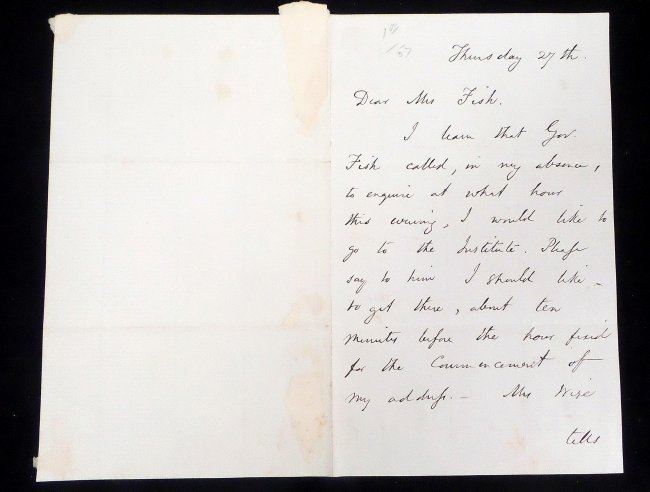 Thursday 27th.
Dear Mrs Fish.
I learn that Gov.
Fish called, in my absence,
to enquire at what hour
this evening, I would like to
go to the Institute. Please
say to him I should like -
to get there, about ten
minutes before the hour fixed
for the Commencement of
my address. - Mrs Wise
tells